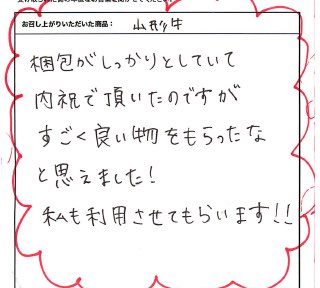 お召し上がりいただいた商品： 山形牛
梱包がしっかりとしていて
内祝で頂いたのですが
すごく良い物をもらったな
と思えました！
私も利用させてもらいます！！